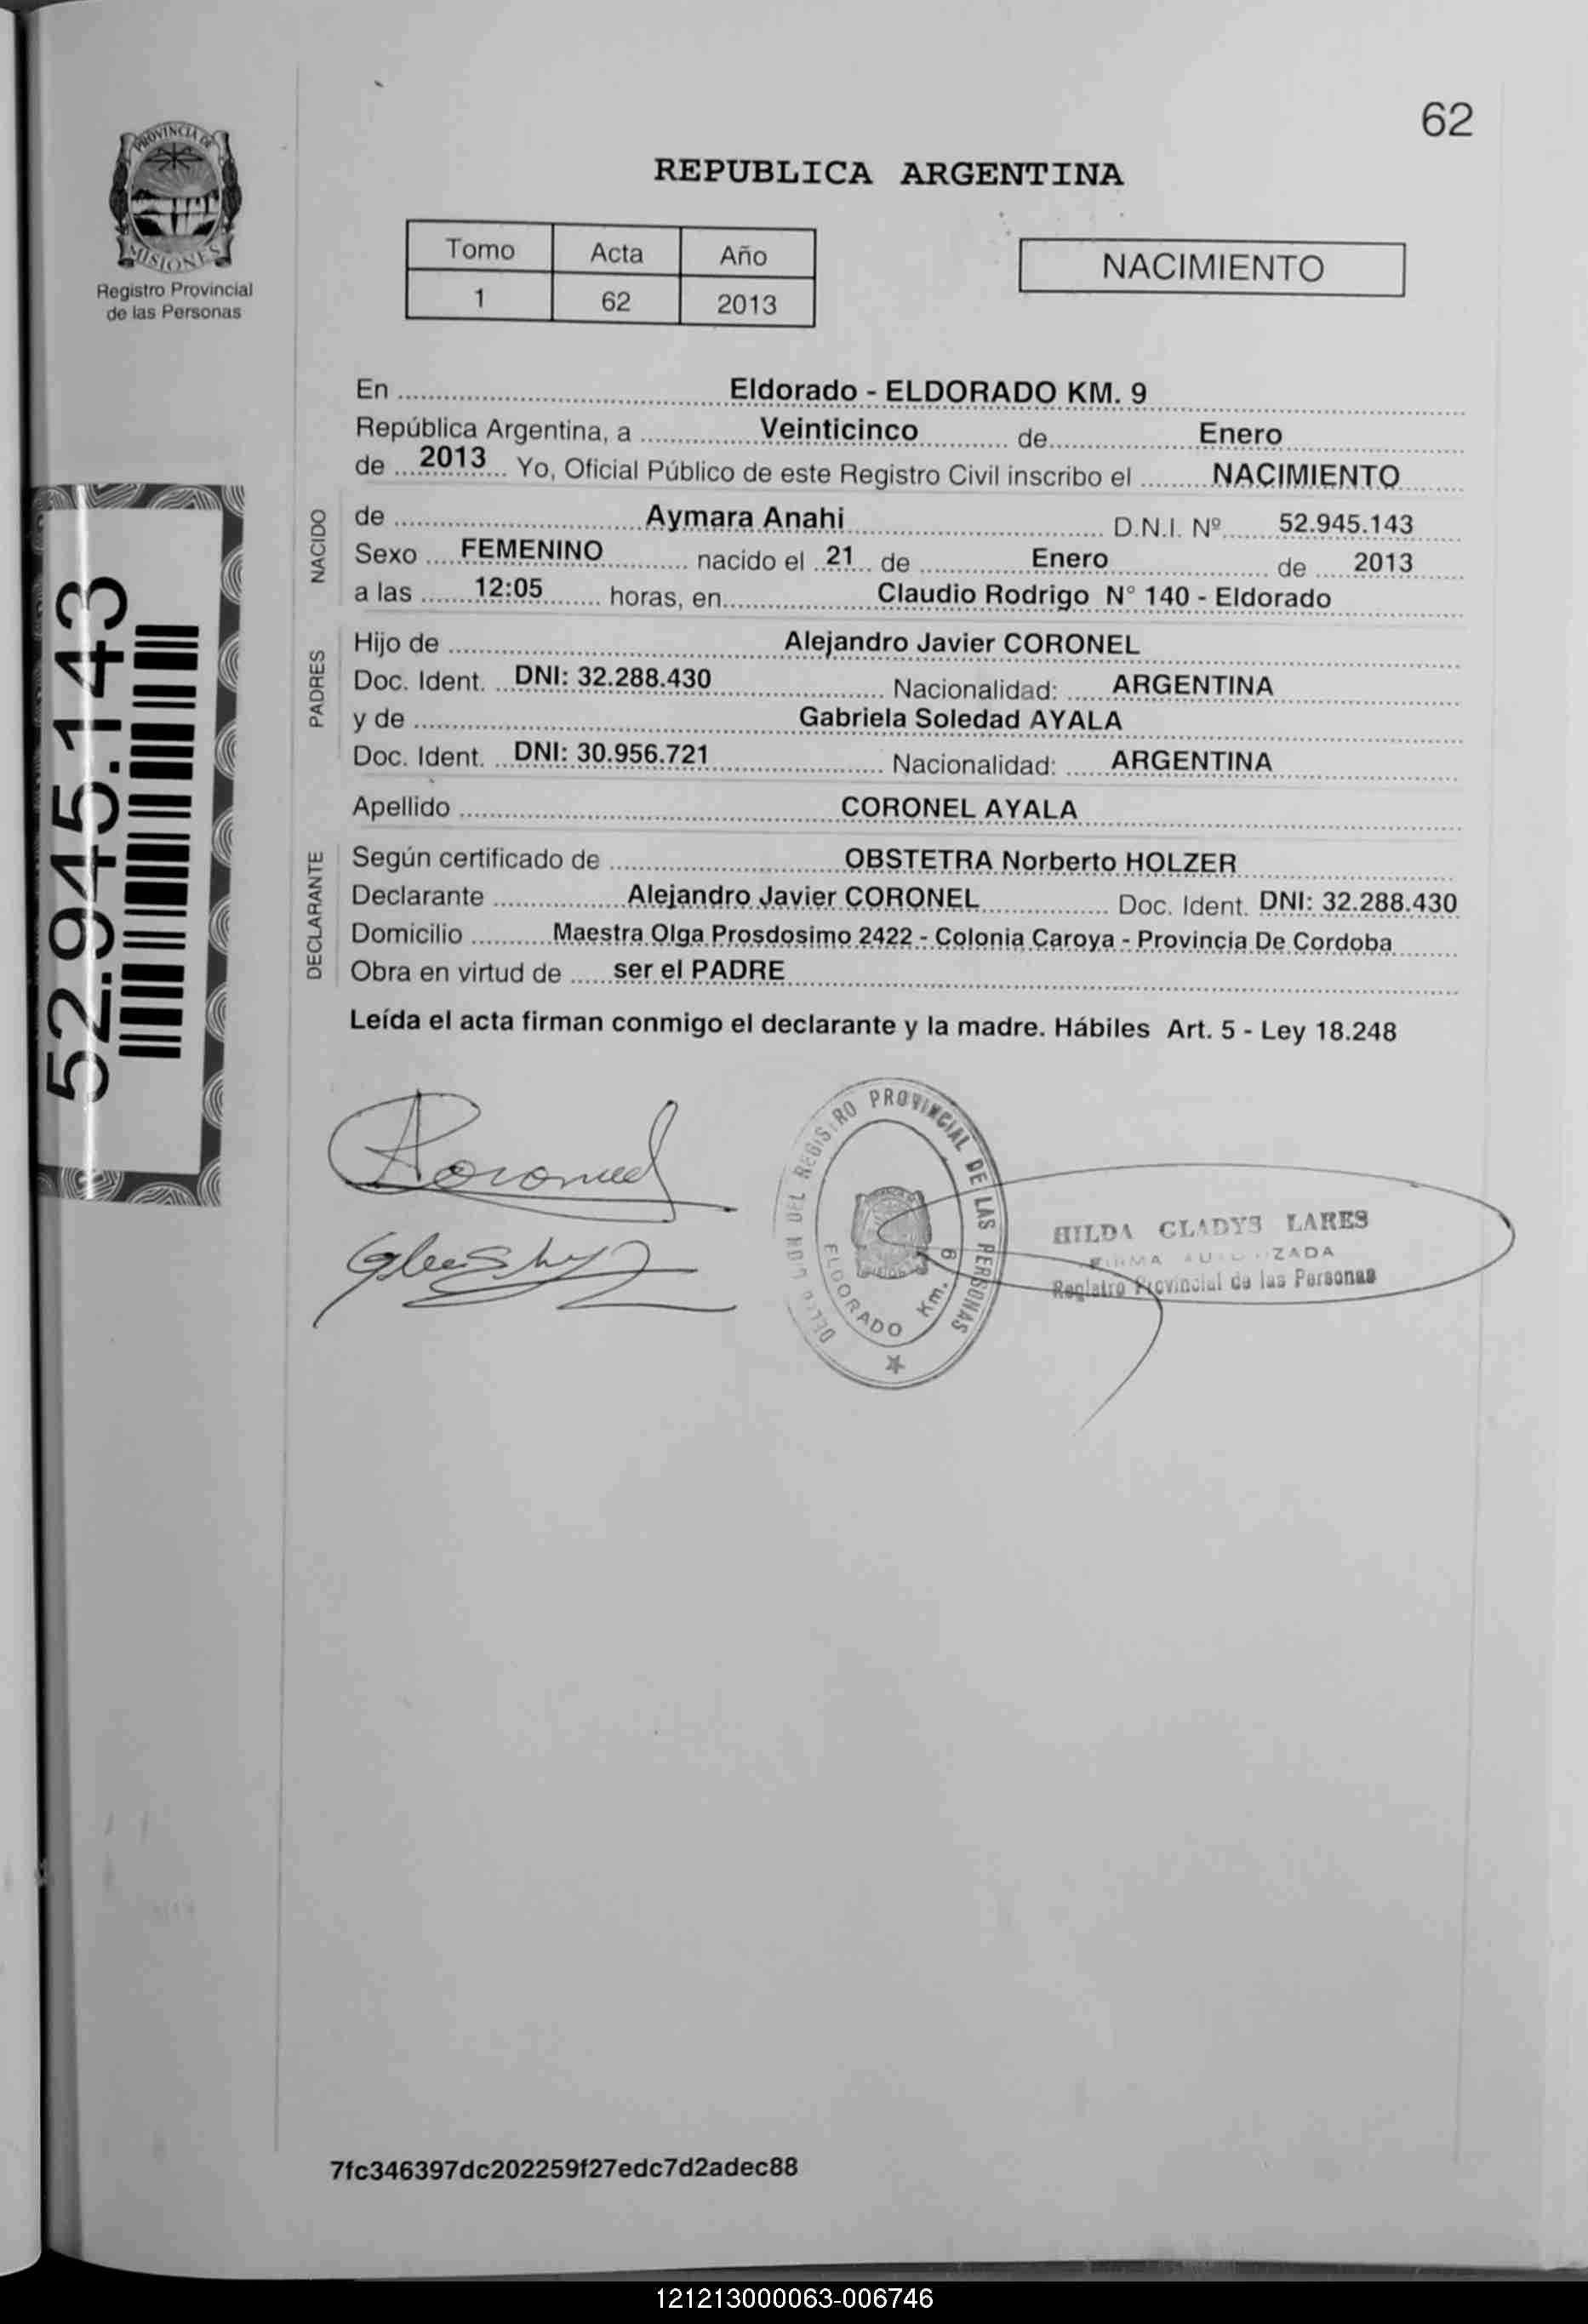 62
PROVINCIA DE
MISIONES
Registro Provincial
de las Personas
REPUBLICA ARGENTINA
Tomo Acta Año
1 62 2013
NACIMIENTO
En Eldorado - ELDORADO KM. 9
República Argentina, a Veinticinco de Enero
de 2013 Yo, Oficial Público de este Registro Civil inscribo el NACIMIENTO
NACIDO
de Aymara Anahi D.N.I. Nº 52.945.143
Sexo FEMENINO nacido el 21 de Enero de 2013
a las 12:05 horas, en Claudio Rodrigo N° 140 - Eldorado
PADRES
Hijo de Alejandro Javier CORONEL
Doc. Ident. DNI: 32.288.430 Nacionalidad: ARGENTINA
y de Gabriela Soledad AYALA
Doc. Ident. DNI: 30.956.721 Nacionalidad: ARGENTINA
Apellido CORONEL AYALA
DECLARANTE
Según certificado de OBSTETRA Norberto HOLZER
Declarante Alejandro Javier CORONEL Doc. Ident. DNI: 32.288.430
Domicilio Maestra Olga Prosdosimo 2422 - Colonia Caroya - Provincia De Cordoba
Obra en virtud de ser el PADRE
Leída el acta firman conmigo el declarante y la madre. Hábiles Art. 5 - Ley 18.248
52.945.143
DEL REGISTRO PROVINCIAL DE LAS PERSONAS
ELDORADO Km. 9
HILDA GLADYS LARES
Registro Provincial de las Personas
7fc346397dc202259f27edc7d2adec88
121213000063-006746